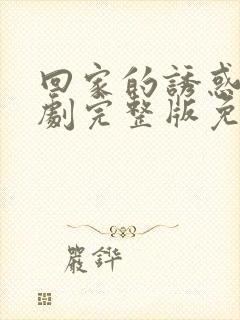 回家的誘惑
劇完整版免
嚴鏵